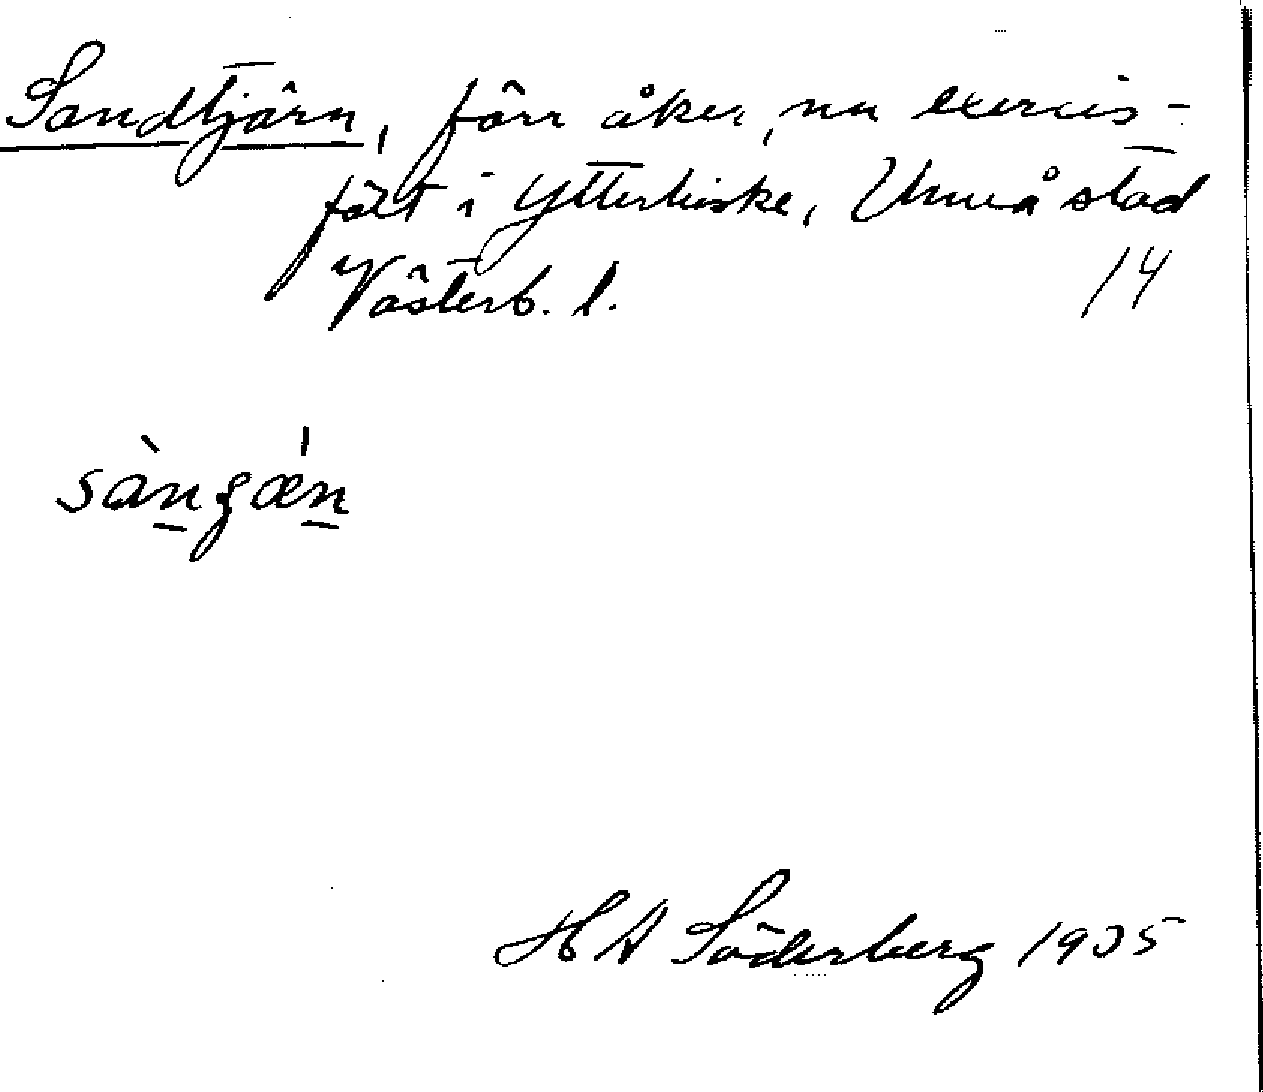 Sandtjärn, förr åker, nu exercis-
fält i Ytterhiske, Umeå stad
Västerb. l. 14
H A Söderberg 1935